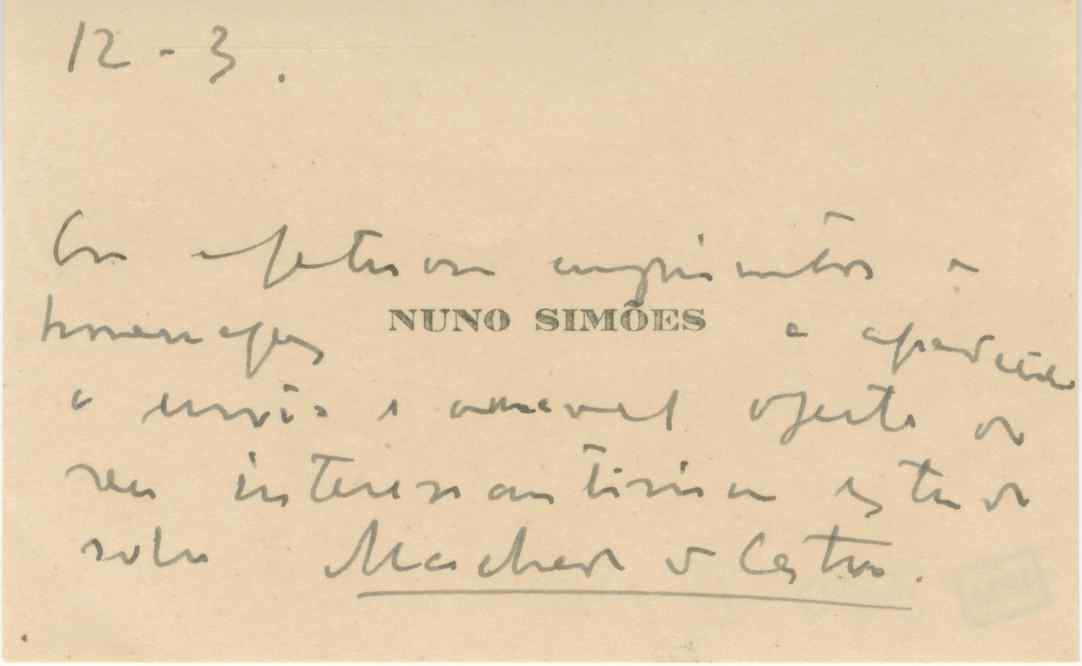 12-3.
Com afectuosos cumprimentos e
homenagens NUNO SIMÕES e agradece
o envio e amavel oferta do
seu interessantissimo estudo
sobre Machado de Castro.